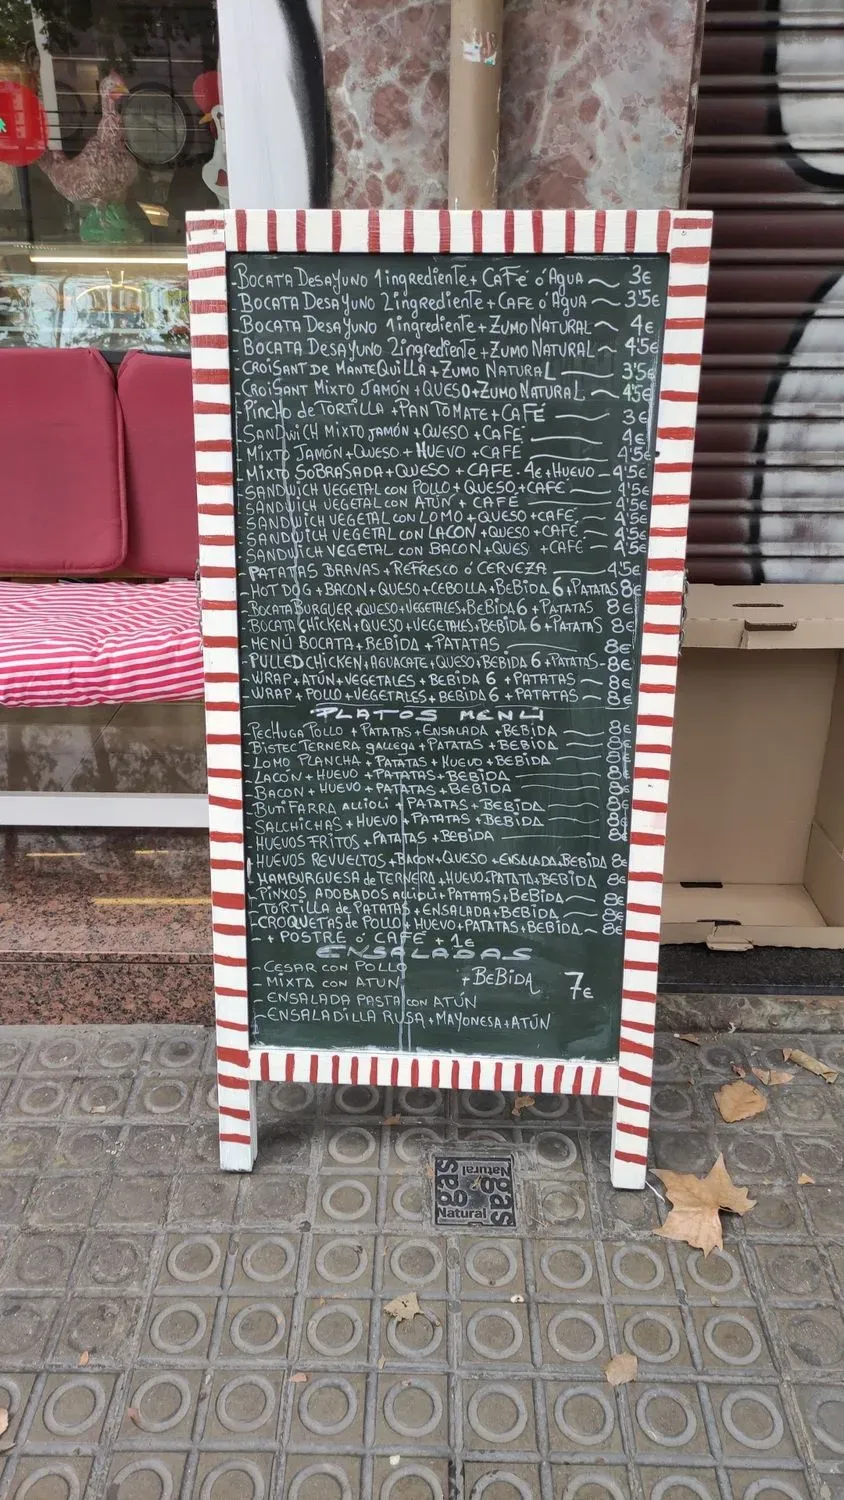 -BOCATA DESAYUNO 1 ingrediente + CAFé ó AGUA ~ 3€
-BOCATA DESAYUNO 2 ingrediente + CAFE o AGUA ~ 3'5€
-BOCATA DESAYUNO 1 ingrediente + ZUMO NATURAL ~ 4€
-BOCATA DESAYUNO 2 ingrediente + ZUMO NATURAL ~ 4'5€
-CROISANT DE MANTEQUILLA + ZUMO NATURAL — 3'5€
-CROISANT MIXTO JAMÓN + QUESO + ZUMO NATURAL — 4'5€
-PINCHO de TORTILLA + PAN TOMATE + CAFÉ — 3€
-SANDWICH MIXTO JAMÓN + QUESO + CAFE — 4€
-MIXTO JAMÓN + QUESO + HUEVO + CAFÉ — 4'5€
-MIXTO SOBRASADA + QUESO + CAFE - 4€ + HUEVO — 4'5€
-SANDWICH VEGETAL con POLLO + QUESO + CAFE — 4'5€
-SANDWICH VEGETAL con ATÚN + CAFÉ — 4'5€
-SANDWICH VEGETAL con LOMO + QUESO + CAFÉ — 4'5€
-SANDWICH VEGETAL con LACON + QUESO + CAFÉ — 4'5€
-SANDWICH VEGETAL con BACON + QUES + CAFÉ — 4'5€
-PATATAS BRAVAS + REFRESCO ó CERVEZA — 4'5€
-HOT DOG + BACON + QUESO + CEBOLLA + BEBIDA 6 + PATATAS 8€
-BOCATA BURGUER + QUESO + VEGETALES, BEBIDA 6 + PATATAS 8€
-BOCATA CHICKEN + QUESO + VEGETALES, BEBIDA 6 + PATATAS 8€
-MENÚ BOCATA + BEBIDA + PATATAS — 8€
-PULLED CHICKEN + AGUACATE + QUESO, BEBIDA 6 + PATATAS - 8€
-WRAP + ATÚN + VEGETALES + BEBIDA 6 + PATATAS — 8€
-WRAP + POLLO + VEGETALES + BEBIDA 6 + PATATAS — 8€
PLATOS MENÚ
-PECHUGA POLLO + PATATAS + ENSALADA + BEBIDA — 8€
-BISTEC TERNERA gallega + PATATAS + BEBIDA — 8€
-LOMO PLANCHA + PATATAS + HUEVO + BEBIDA — 8€
-LACÓN + HUEVO + PATATAS + BEBIDA — 8€
-BACON + HUEVO + PATATAS + BEBIDA — 8€
-BUTIFARRA ALLIOLI + PATATAS + BEBIDA — 8€
-SALCHICHAS + HUEVO + PATATAS + BEBIDA — 8€
-HUEVOS FRITOS + PATATAS + BEBIDA — 8€
-HUEVOS REVUELTOS + BACON + QUESO + ENSALADA, BEBIDA 8€
-HAMBURGUESA de TERNERA + HUEVO + PATATA + BEBIDA 8€
-PINXOS ADOBADOS allioli + PATATAS + BEBIDA — 8€
-TORTILLA de PATATAS + ENSALADA + BEBIDA — 8€
-CROQUETAS de POLLO + HUEVO + PATATAS, BEBIDA - 8€
- + POSTRE ó CAFÉ + 1€
ENSALADAS
-CESAR CON POLLO
-MIXTA CON ATUN + BEBIDA 7€
-ENSALADA PASTA con ATÚN
-ENSALADILLA RUSA + MAYONESA + ATÚN
gas Natural
gas Natural